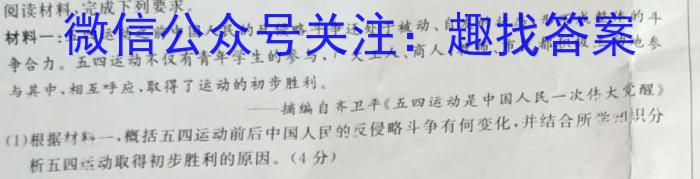 阅读材料,完成下列要求。
微信公众号关注:趣找答案
材料一:中国人民的侵略斗争还处于被动、自的斗
争合力。五四运动不仅有青年学生的参与,广大工人、商人地参
与其中,相互呼应,取得了运动的初步胜利。
——摘编自齐卫平《五四运动是中国人民一次伟大觉醒》
(1)根据材料一,概括五四运动前后中国人民的反侵略斗争有何变化,并结合所学知识分
析五四运动取得初步胜利的原因。(4分)